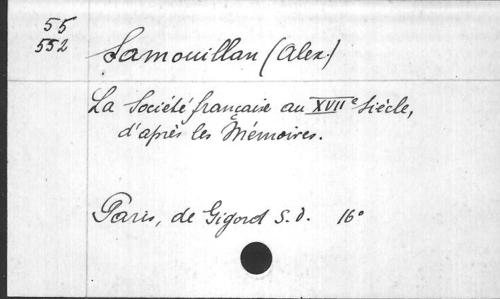 55
552
Samouillan (Alex.)
La Société française au XVIIe Siècle,
d'après les Mémoires.
Paris, de Gigord S. d. 16°